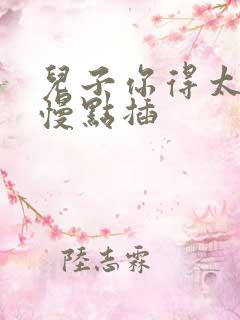 兒子你得太
慢點插
陸志霖